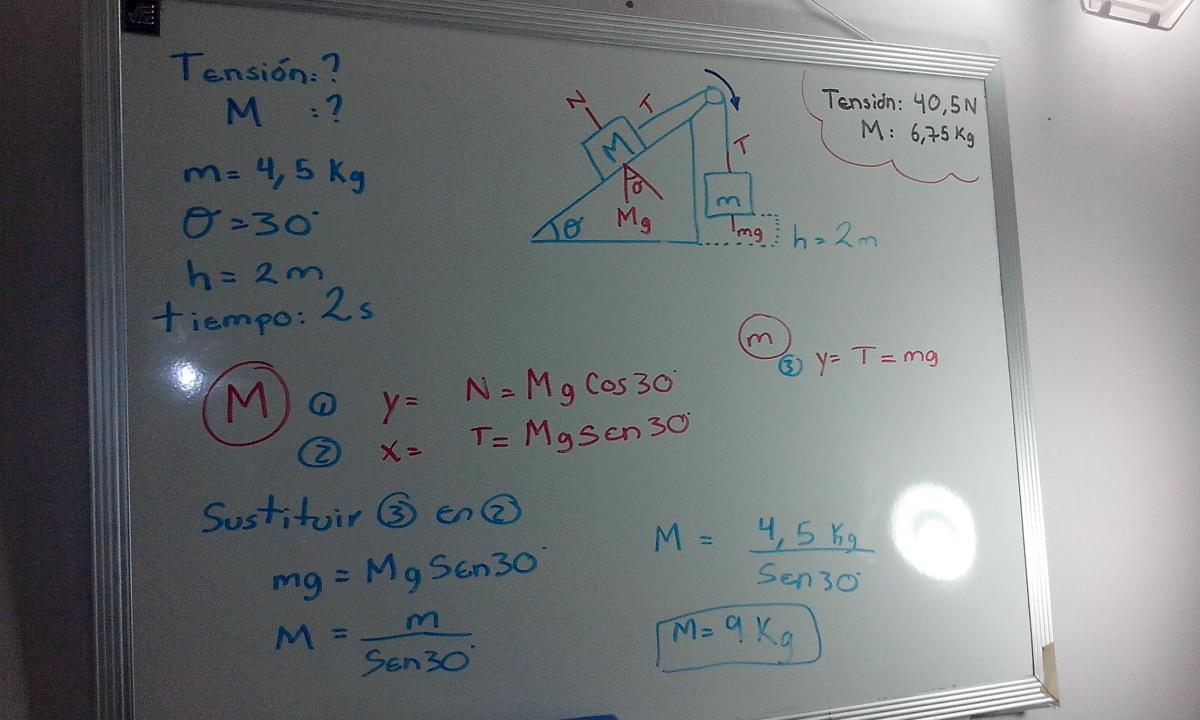 Tensión: ?
M : ?
m = 4,5 Kg
θ = 30°
h = 2 m
tiempo: 2s
N
T
M
θ
Mg
θ
T
m
mg
h = 2m
Tensión: 40,5 N
M: 6,75 Kg
m
③ y = T = mg
M ① y = N = Mg Cos 30°
② x = T = Mg Sen 30°
Sustituir ③ en ②
mg = Mg Sen 30°
M = m / Sen 30°
M = 4,5 Kg / Sen 30°
M = 9 Kg